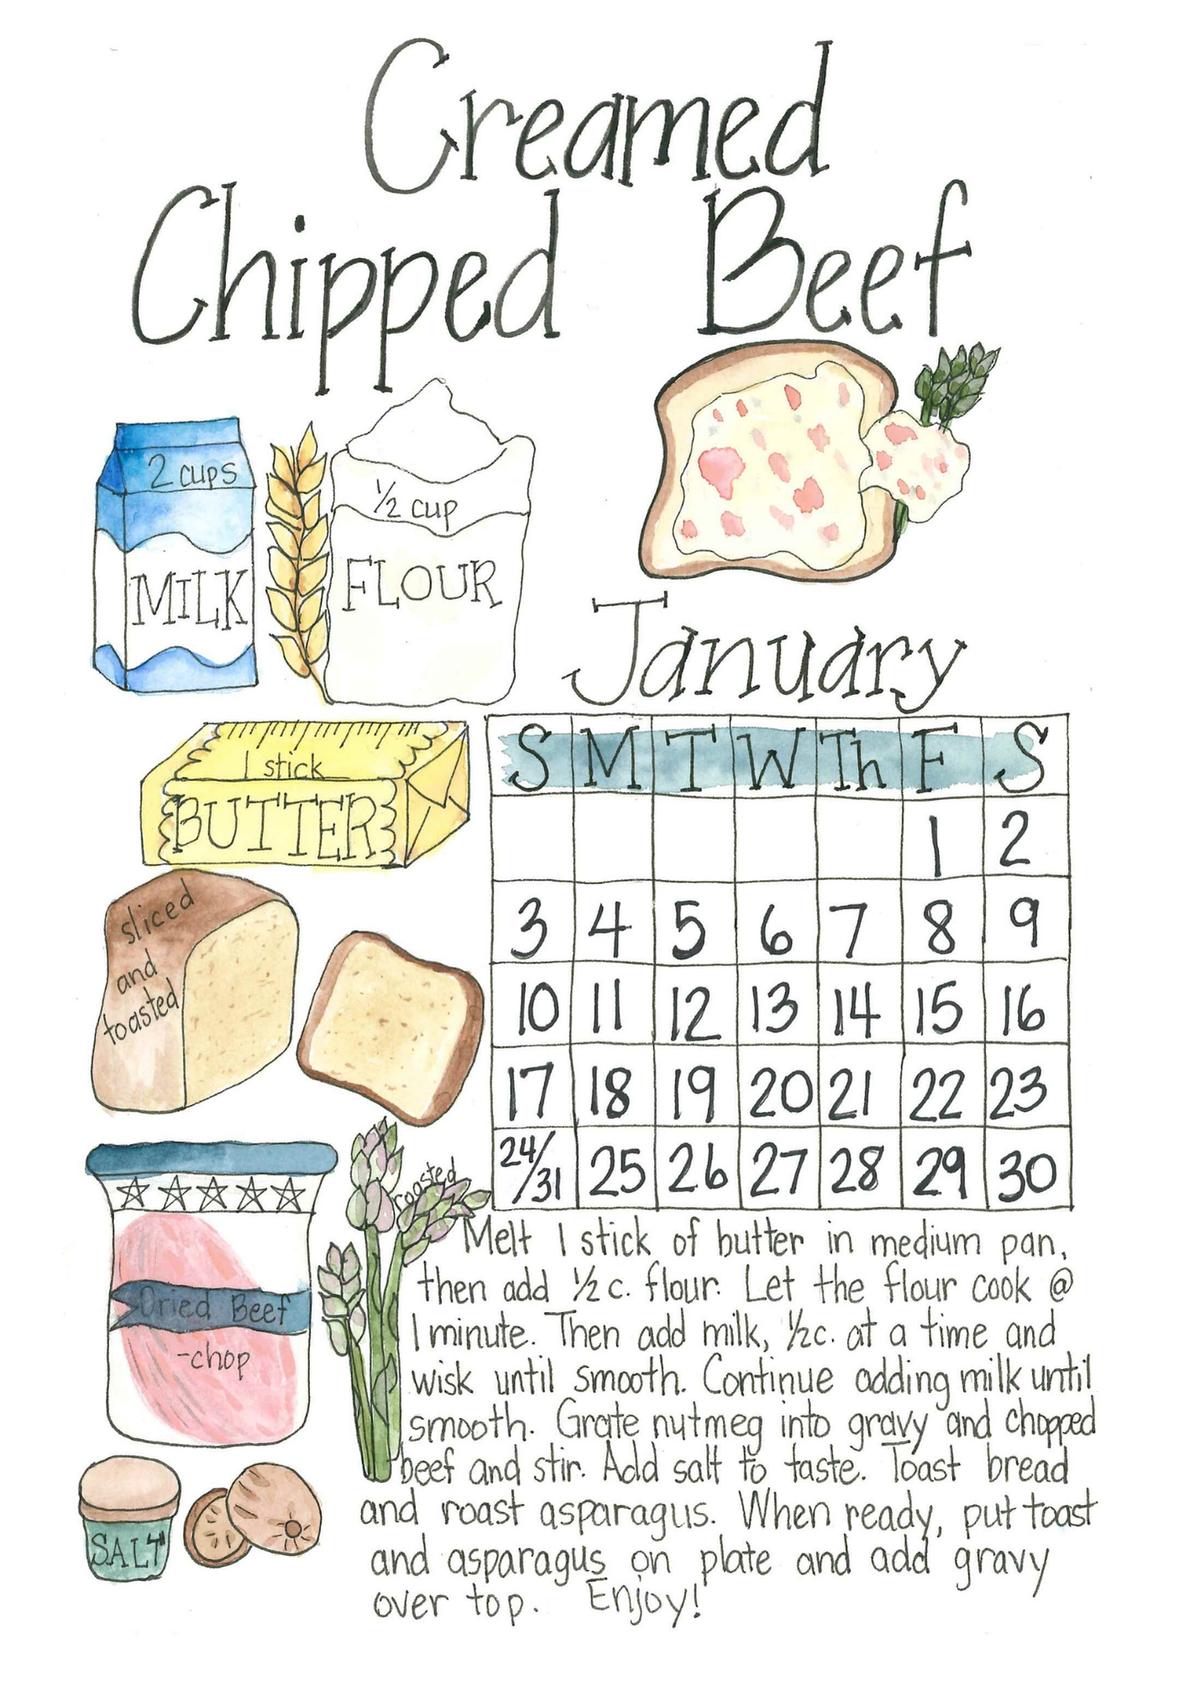 Creamed
Chipped Beef
2 cups
MILK
1/2 cup
FLOUR
January
1 stick
BUTTER
S M T W Th F S
1 2
3 4 5 6 7 8 9
10 11 12 13 14 15 16
17 18 19 20 21 22 23
24/31 25 26 27 28 29 30
sliced
and
toasted
roasted
Dried Beef
-chop
SALT
Melt 1 stick of butter in medium pan,
then add 1/2 c. flour. Let the flour cook @
1 minute. Then add milk, 1/2c. at a time and
wisk until smooth. Continue adding milk until
smooth. Grate nutmeg into gravy and chopped
beef and stir. Add salt to taste. Toast bread
and roast asparagus. When ready, put toast
and asparagus on plate and add gravy
over top. Enjoy!